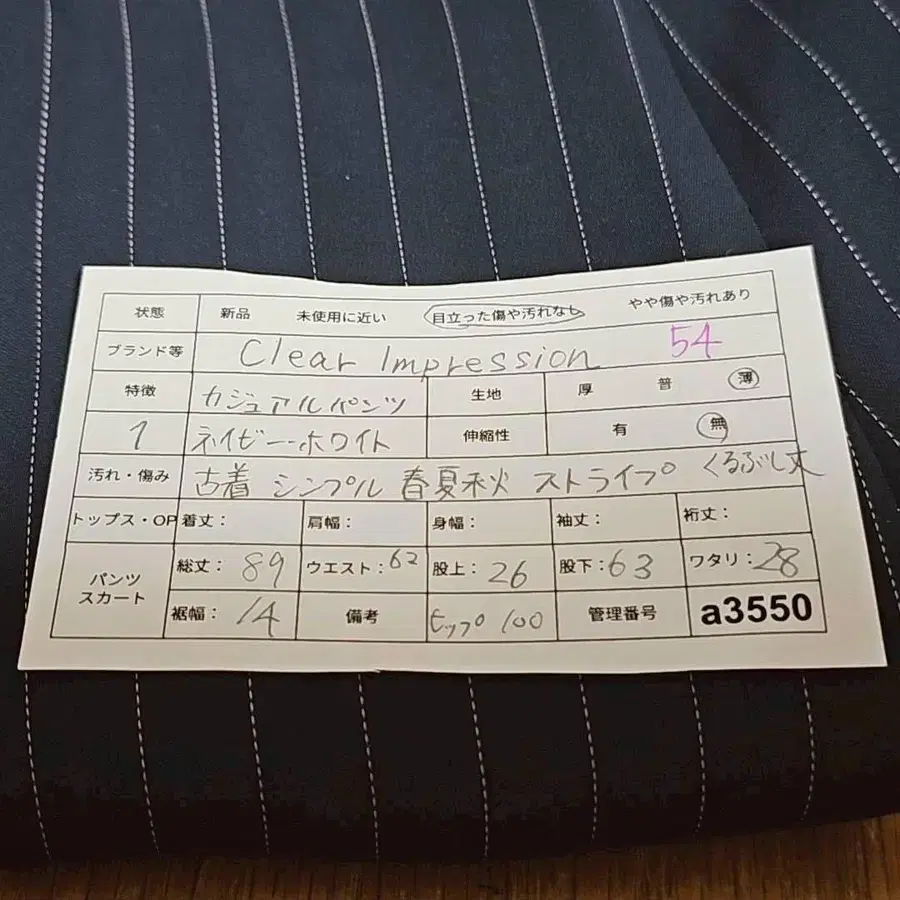 状態 新品 未使用に近い 目立った傷や汚れなし やや傷や汚れあり
ブランド等 Clear Impression 54
特徴 カジュアルパンツ 生地 厚 普 薄
1 ネイビー・ホワイト 伸縮性 有 無
汚れ・傷み 古着 シンプル 春夏秋 ストライプ くるぶし丈
トップス・OP 着丈: 肩幅: 身幅: 袖丈: 裄丈:
パンツ スカート 総丈: 89 ウエスト: 62 股上: 26 股下: 63 ワタリ: 28
裾幅: 14 備考 ヒップ 100 管理番号 a3550